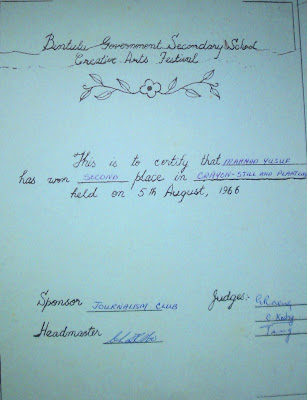 Bintulu Government Secondary School
Creative Arts Festival
This is to certify that MAHMUD YUSUF
has won SECOND place in CRAYON-STILL AND PLANTING
held on 5th August, 1966
Sponsor JOURNALISM CLUB
Judges:-
Headmaster